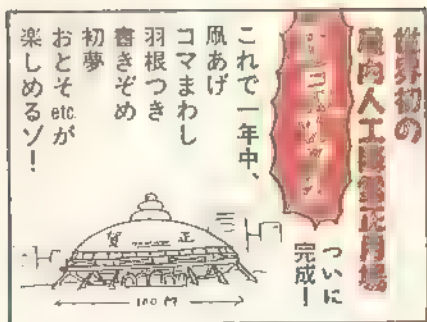 世界初の
屋内人工正月場
ついに
完成!
これで一年中、
凧あげ
コマまわし
羽根つき
書きぞめ
初夢
おとそetc.が
楽しめるゾ!
賀正